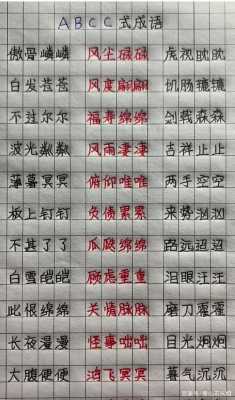 ABCC式成语
傲骨嶙嶙 风尘碌碌 虎视眈眈
白发苍苍 风度翩翩 饥肠辘辘
不过尔尔 福寿绵绵 剑戟森森
波光粼粼 风雨凄凄 吉祥止止
薄暮冥冥 俯仰唯唯 两手空空
板上钉钉 负债累累 来势汹汹
不甚了了 瓜瓞绵绵 路远迢迢
白雪皑皑 顾虑重重 泪眼汪汪
此恨绵绵 关情脉脉 磨刀霍霍
长夜漫漫 怪事咄咄 目光炯炯
大腹便便 鸿飞冥冥 暮气沉沉